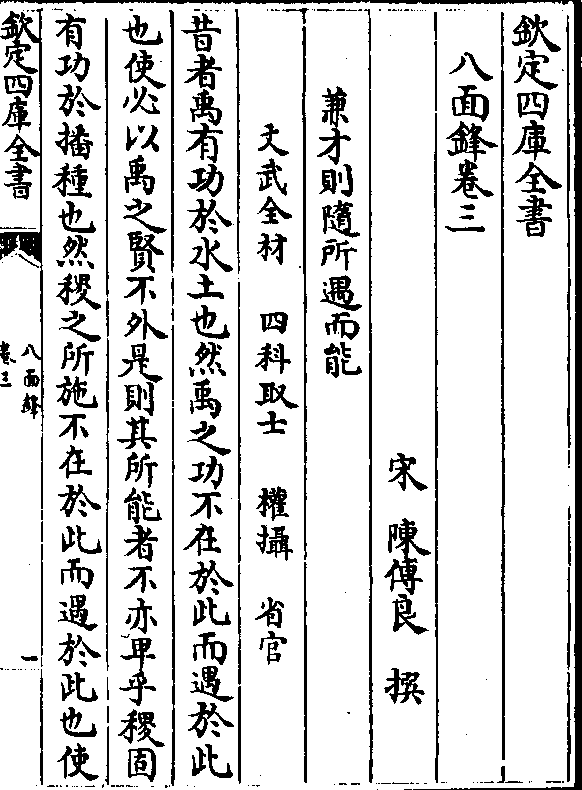 欽定四庫全書
八面鋒卷三
宋 陳傅良 撰
兼才則隨所遇而能
文武全材 四科取士 權攝 省官
昔者禹有功於水土也然禹之功不在於此而遇於此
也使必以禹之賢不外是則其所能者不亦卑乎稷固
有功於播種也然稷之所施不在於此而遇於此也使
欽定四庫全書
八面鋒
卷三
一